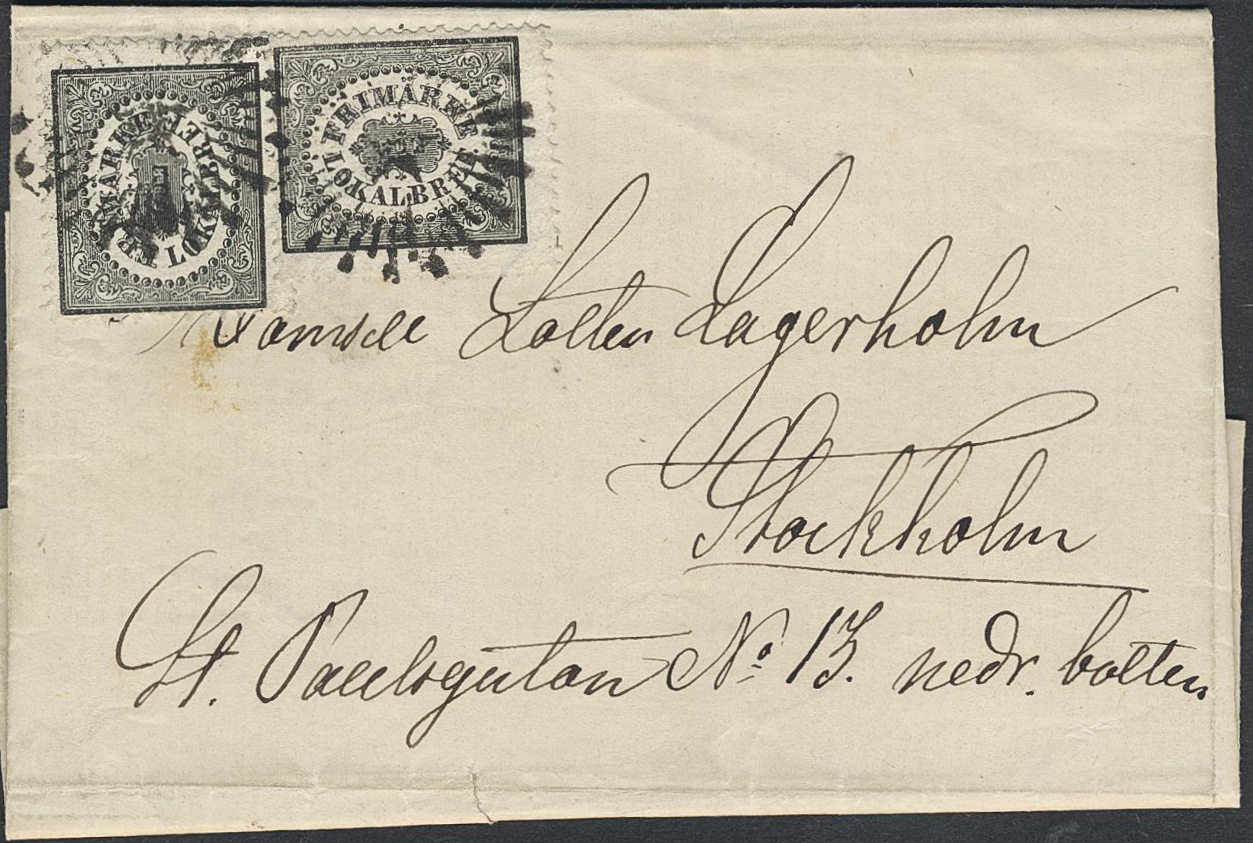 FRIMÄRKE LOKALBREF
FRIMÄRKE LOKALBREF
Mamsell Lotten Lagerholm
Stockholm
St. Paulsgatan No 13. nedr. botten